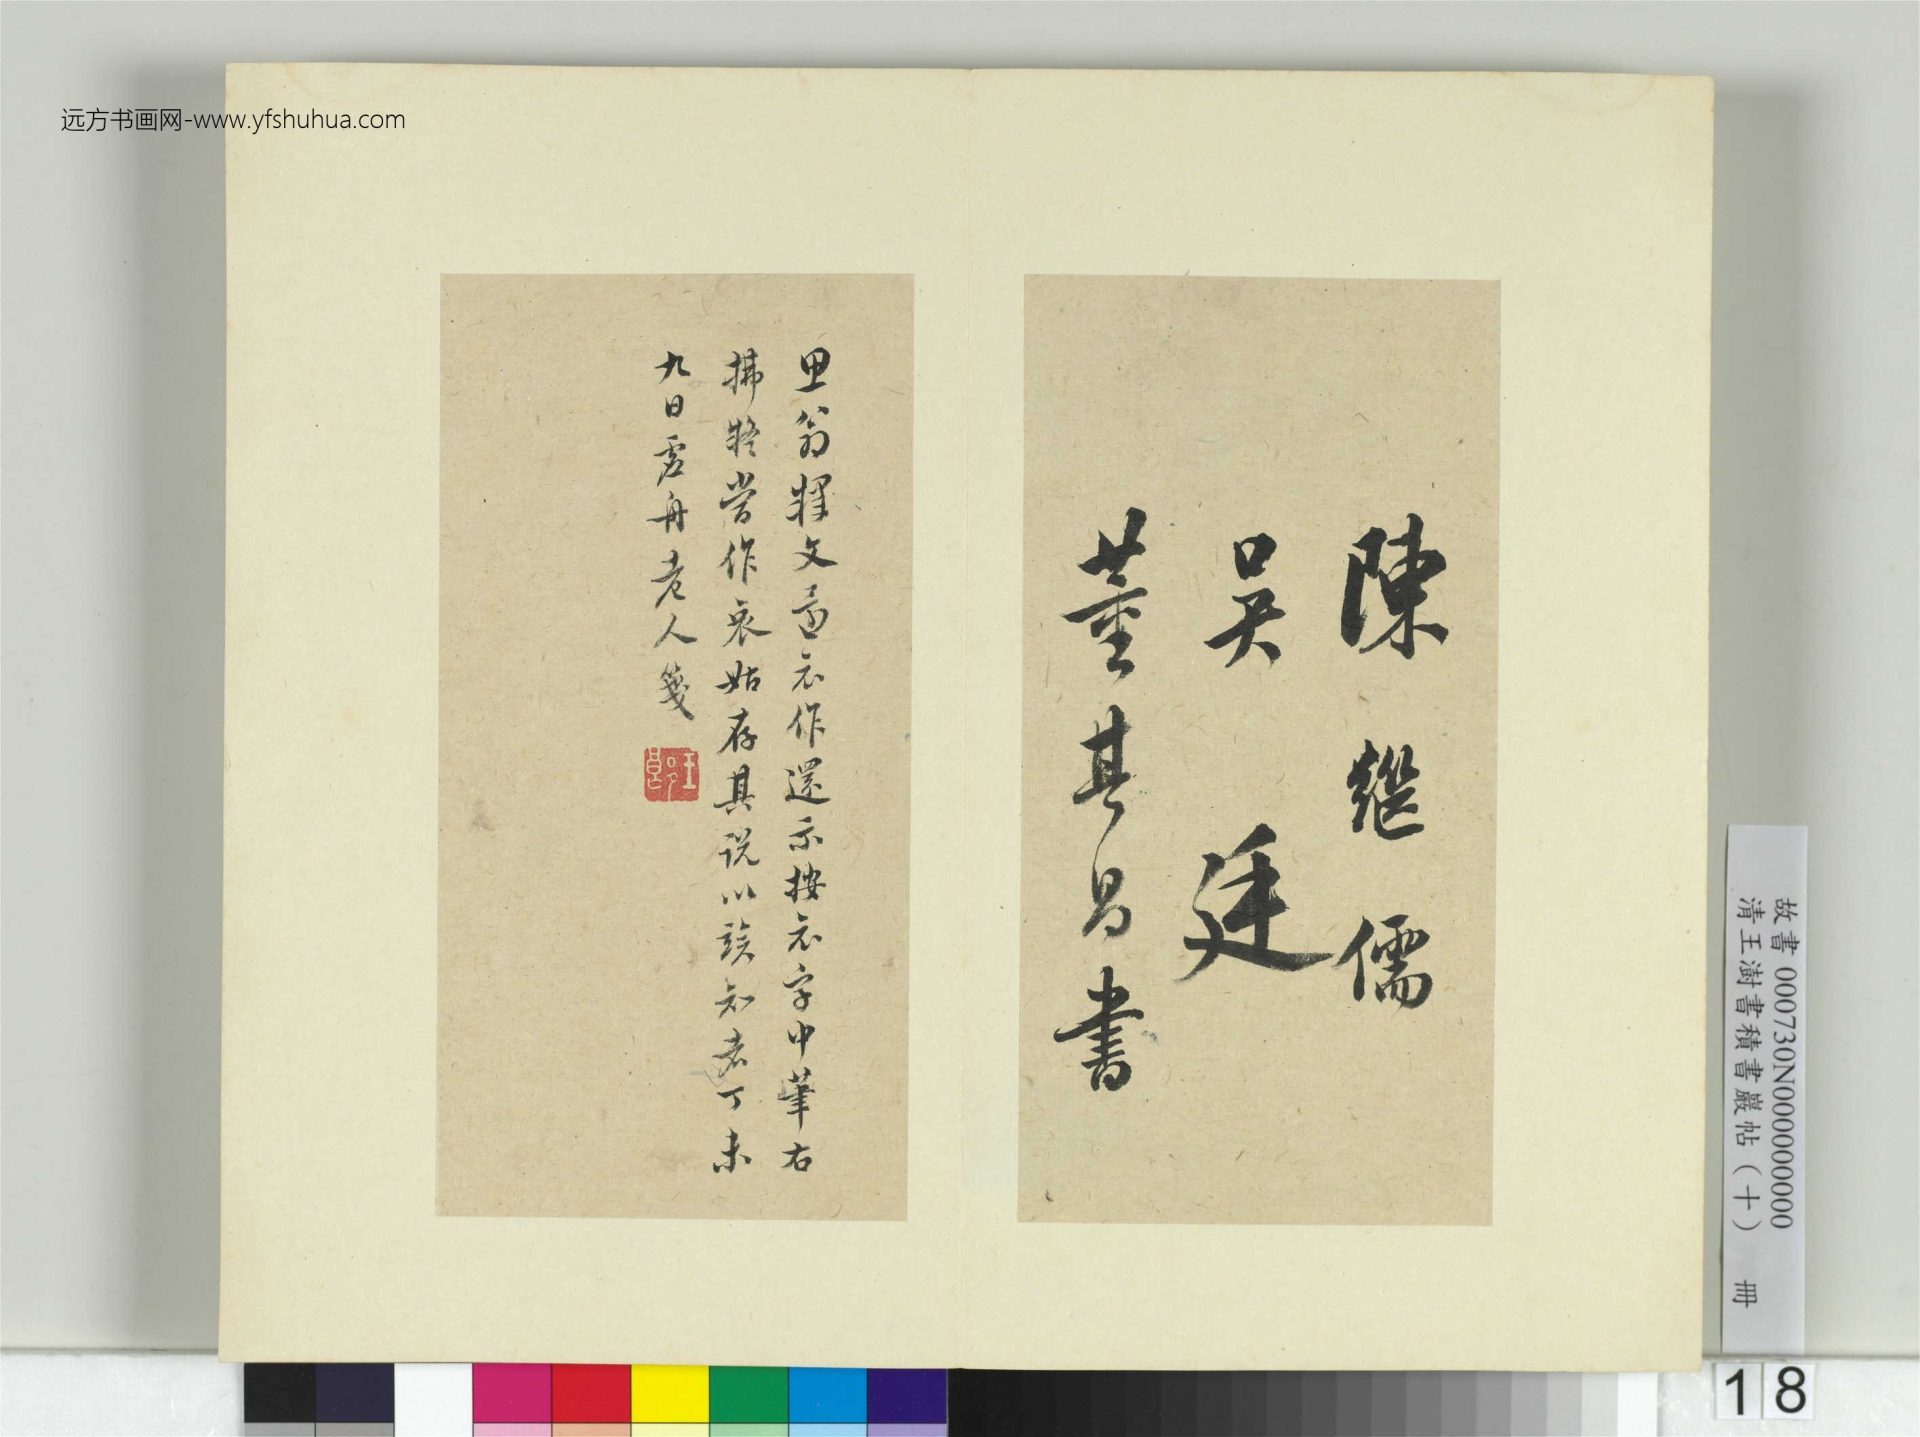 远方书画网-www.yfshuhua.com
陳繼儒
吳廷
董其昌書
思翁釋文還示作還示按示字中筆右
拂將當作哀姑存其說以諗知者丁未
九日虛舟老人箋
故書 000730N000000000
清王澍書積書巖帖（十） 冊
18